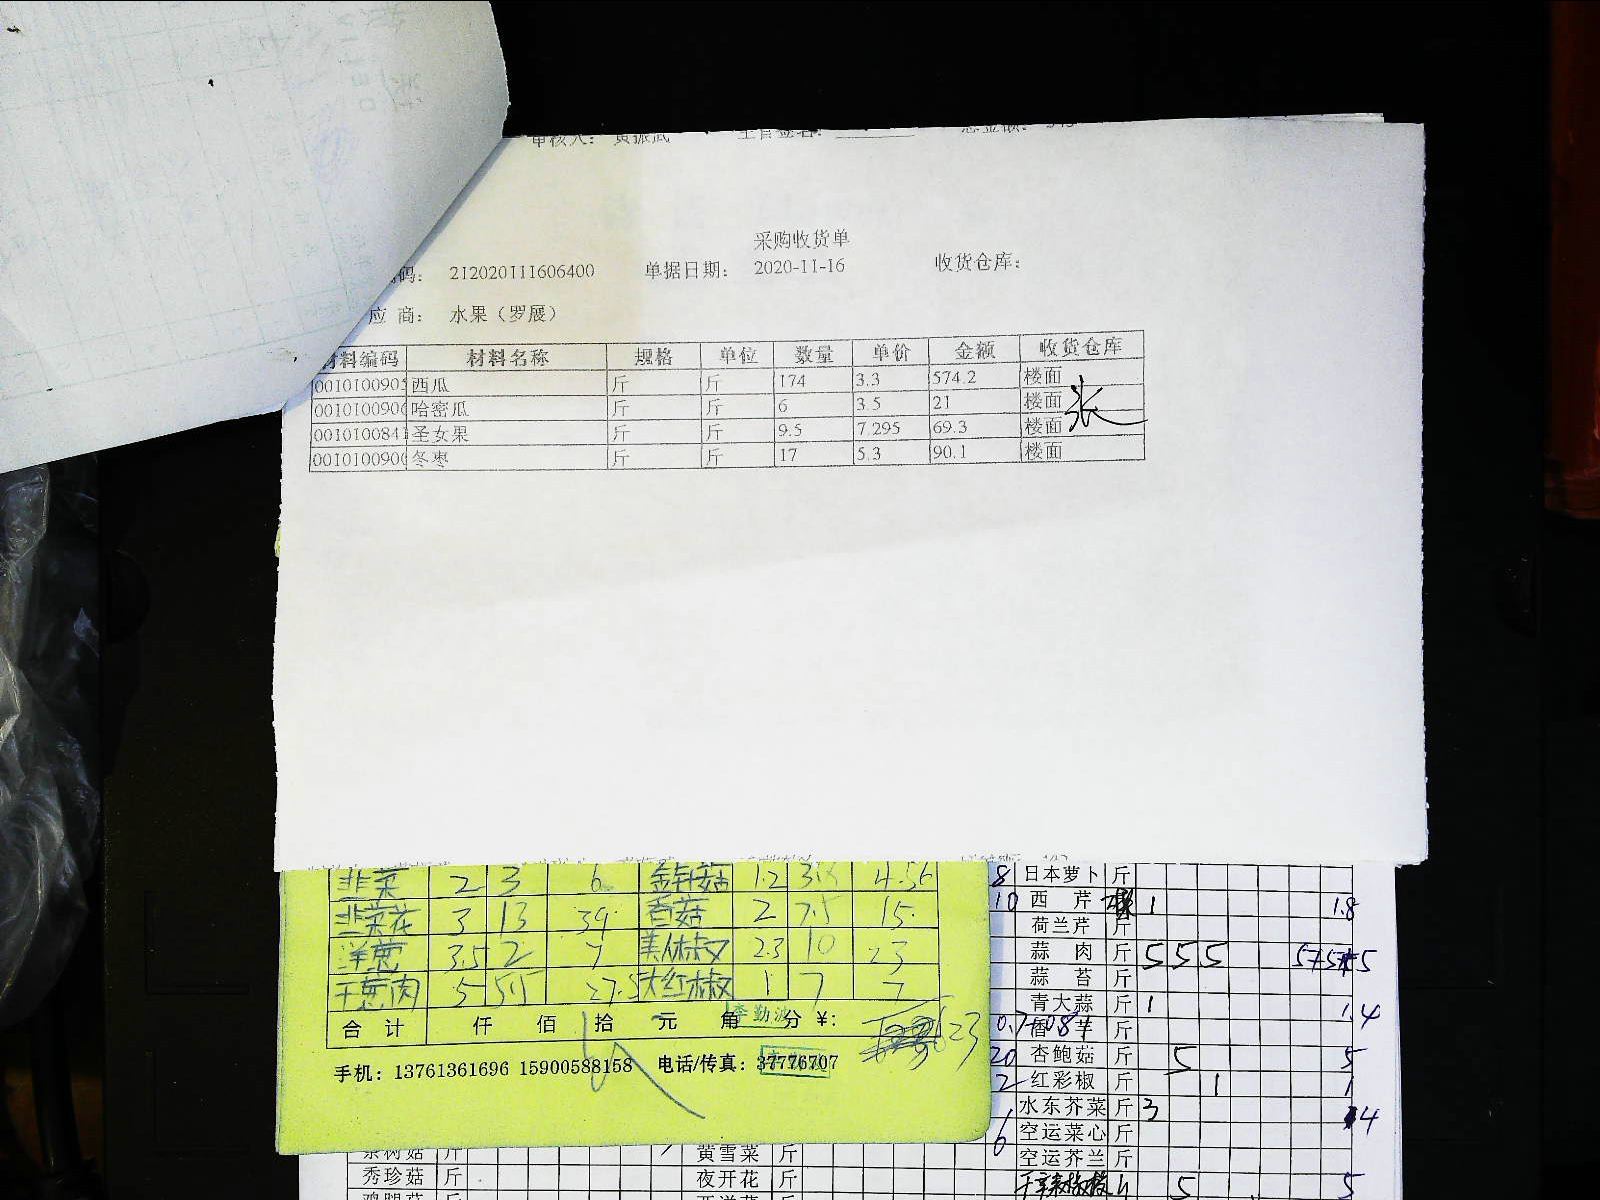 审核人: 黄振武 主管签名: 总金额:
采购收货单
码: 212020111606400 单据日期: 2020-11-16 收货仓库:
应商: 水果（罗展）
材料编码 材料名称 规格 单位 数量 单价 金额 收货仓库
001010090 西瓜 斤 斤 174 3.3 574.2 楼面
001010090 哈密瓜 斤 斤 6 3.5 21 楼面 张
001010084 圣女果 斤 斤 9.5 7.295 69.3 楼面
001010090 冬枣 斤 斤 17 5.3 90.1 楼面
韭菜 2 3 6 金针菇 1.2 3.8 4.56
韭菜花 3 13 39 香菇 2 7.5 15
洋葱 3.5 2 7 美人椒 2.3 10 23
干葱肉 5 5.5 27.5 大红椒 1 7 7
合计 仟 佰 拾 元 角 分 ¥:
李勤波
手机: 13761361696 15900588158 电话/传真: 37776707
8 日本萝卜 斤
10 西芹 1 1.8
荷兰芹 斤
蒜肉 斤 5 5 5
蒜苔 斤
青大蒜 斤 1 1.4
香芋 斤
20 杏鲍菇 斤 5 5
2 红彩椒 斤 1 1
水东芥菜 斤 3 4
6 空运菜心 斤
空运芥兰 斤
5 5
茶树菇 斤 黄雪菜 斤
秀珍菇 斤 夜开花 斤
鸡腿菇 斤 西洋菜 斤